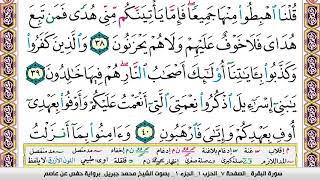 قُلْنَا ٱهْبِطُوا۟ مِنْهَا جَمِيعًا ۖ فَإِمَّا يَأْتِيَنَّكُم مِّنِّى هُدًى فَمَن تَبِعَ
هُدَاىَ فَلَا خَوْفٌ عَلَيْهِمْ وَلَا هُمْ يَحْزَنُونَ ٣٨ وَٱلَّذِينَ كَفَرُوا۟
وَكَذَّبُوا۟ بِـَٔايَٰتِنَآ أُو۟لَٰٓئِكَ أَصْحَٰبُ ٱلنَّارِ ۖ هُمْ فِيهَا خَٰلِدُونَ ٣٩
يَٰبَنِىٓ إِسْرَٰٓءِيلَ ٱذْكُرُوا۟ نِعْمَتِىَ ٱلَّتِىٓ أَنْعَمْتُ عَلَيْكُمْ وَأَوْفُوا۟ بِعَهْدِىٓ
أُوفِ بِعَهْدِكُمْ وَإِيَّٰىَ فَٱرْهَبُونِ ٤٠ وَءَامِنُوا۟ بِمَآ أَنزَلْتُ
سورة البقرة الصفحة ٧ الحزب ١ الجزء ١ بصوت الشيخ محمد جبريل برواية حفص عن عاصم